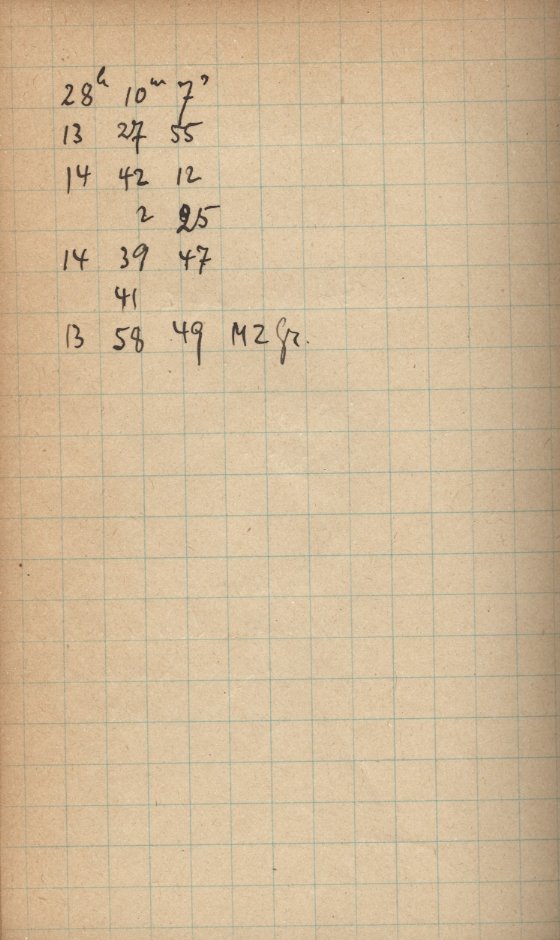 28h 10m 7s
13 27 55
14 42 12
2 25
14 39 47
41
13 58 49 MZ Gr.